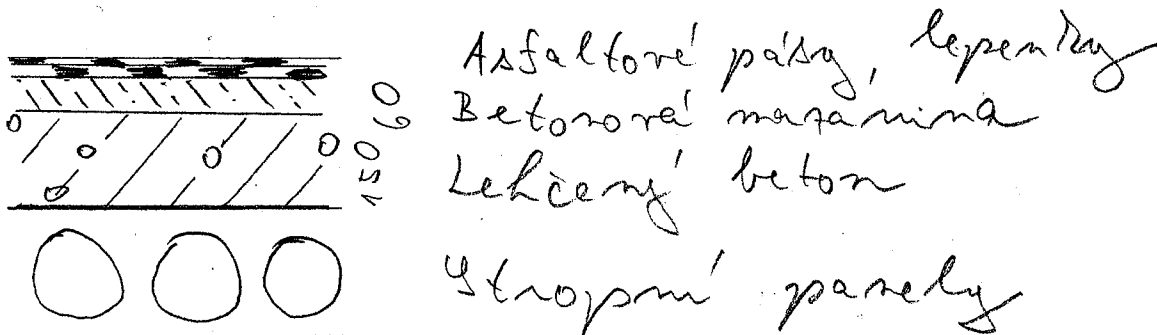 Asfaltové pásy, lepenky
60 Betonová mazanina
150 Lehčený beton
Stropní panely